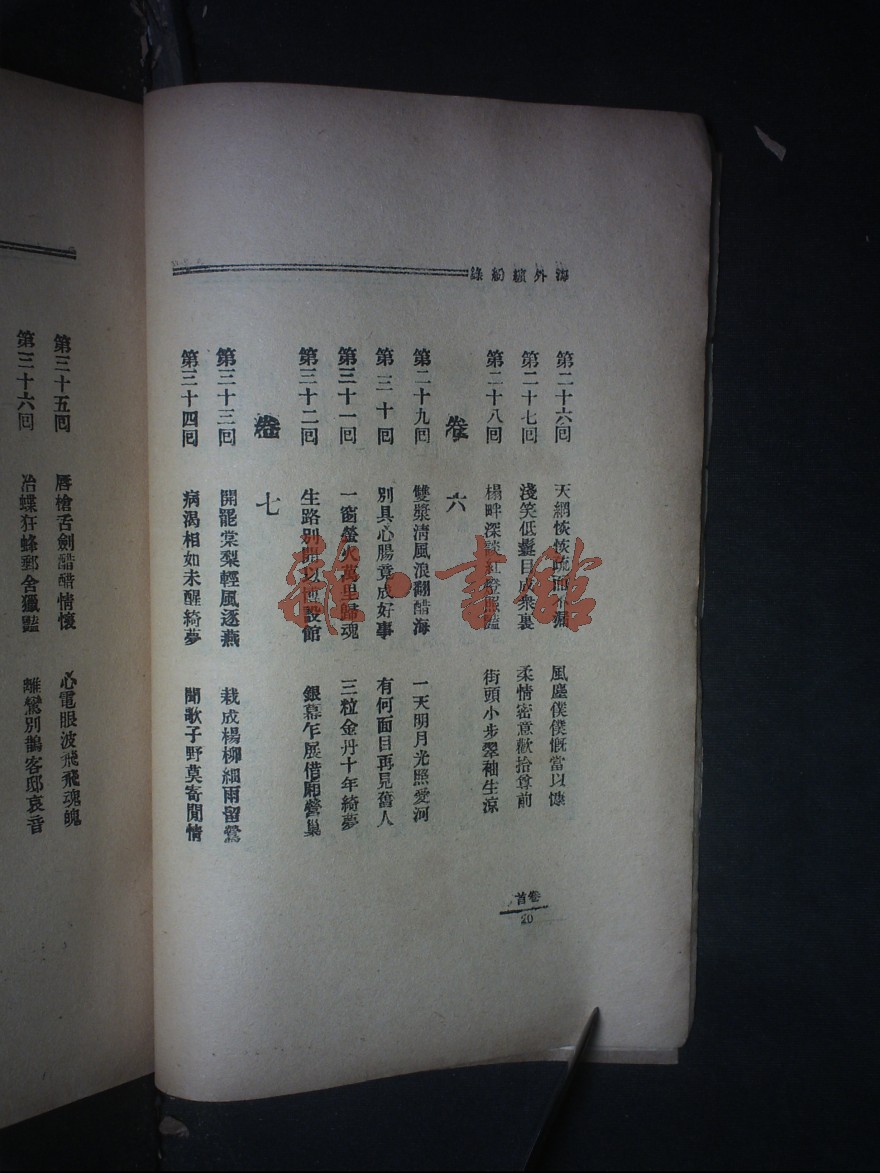 海外繽紛錄
第二十六回 天網恢恢疏而不漏 風塵僕僕慨當以慷
第二十七回 淺笑低顰目成衆裏 柔情密意歡拾尊前
第二十八回 榻畔深談紅燈照豔 街頭小步翠袖生涼
卷六
第二十九回 雙槳清風浪翻醋海 一天明月光照愛河
第三十回 別具心腸竟成好事 有何面目再見舊人
第三十一回 一窗螢火萬里歸魂 三粒金丹十年綺夢
第三十二回 生路別開以博設館 銀幕乍展借廂營巢
卷七
第三十三回 開罷棠梨輕風逐燕 栽成楊柳細雨留鶯
第三十四回 病渴相如未醒綺夢 聞歌子野莫寄閒情
卷首
20
第三十五回 唇槍舌劍醋醋情懷 心電眼波飛飛魂魄
第三十六回 冶蝶狂蜂郵舍獵豔 離鸞別鵲客邸哀音
雜·書館